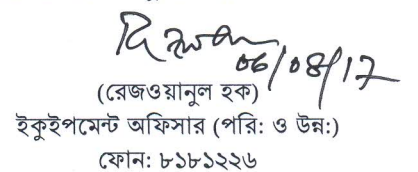 ০৬/০৪/১৭
(রেজওয়ানুল হক)
ইকুইপমেন্ট অফিসার (পরি: ও উন্ন:)
ফোন: ৮১৮১২২৬